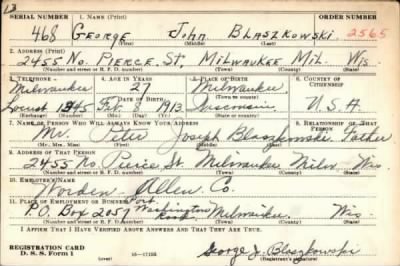 13
SERIAL NUMBER 1. NAME (Print) ORDER NUMBER
468 GEORGE John BLASZKOWSKI. 2565
(First) (Middle) (Last)
2. ADDRESS (Print)
2455 No. PIERCE, ST. MILWAUKEE Mil. Wis.
(Number and street or R. F. D. number) (Town) (County) (State)
3. TELEPHONE 4. AGE IN YEARS 5. PLACE OF BIRTH 6. COUNTRY OF CITIZENSHIP
Milwaukee 27 Milwaukee
DATE OF BIRTH
Locust 1345 Feb 9 1913. Wisconsin U.S.A
7. NAME OF PERSON WHO WILL ALWAYS KNOW YOUR ADDRESS 8. RELATIONSHIP OF THAT PERSON
Mr. Peter Joseph Blaszkowski Father
(Mr., Mrs., Miss) (First) (Middle) (Last)
9. ADDRESS OF THAT PERSON
2455 No. Pierce St Milwaukee Milw. Wis.
(Number and street or R. F. D. number) (Town) (County) (State)
10. EMPLOYER'S NAME
Worden-Allen Co.
11. PLACE OF EMPLOYMENT OR BUSINESS
P.O. Box 2057 Port Washington Road Milwaukee Wis.
(Number and street or R. F. D. number) (Town) (County) (State)
I AFFIRM THAT I HAVE VERIFIED ABOVE ANSWERS AND THAT THEY ARE TRUE.
REGISTRATION CARD
D. S. S. Form 1 (over) George J. Blaszkowski
(Registrant's signature)